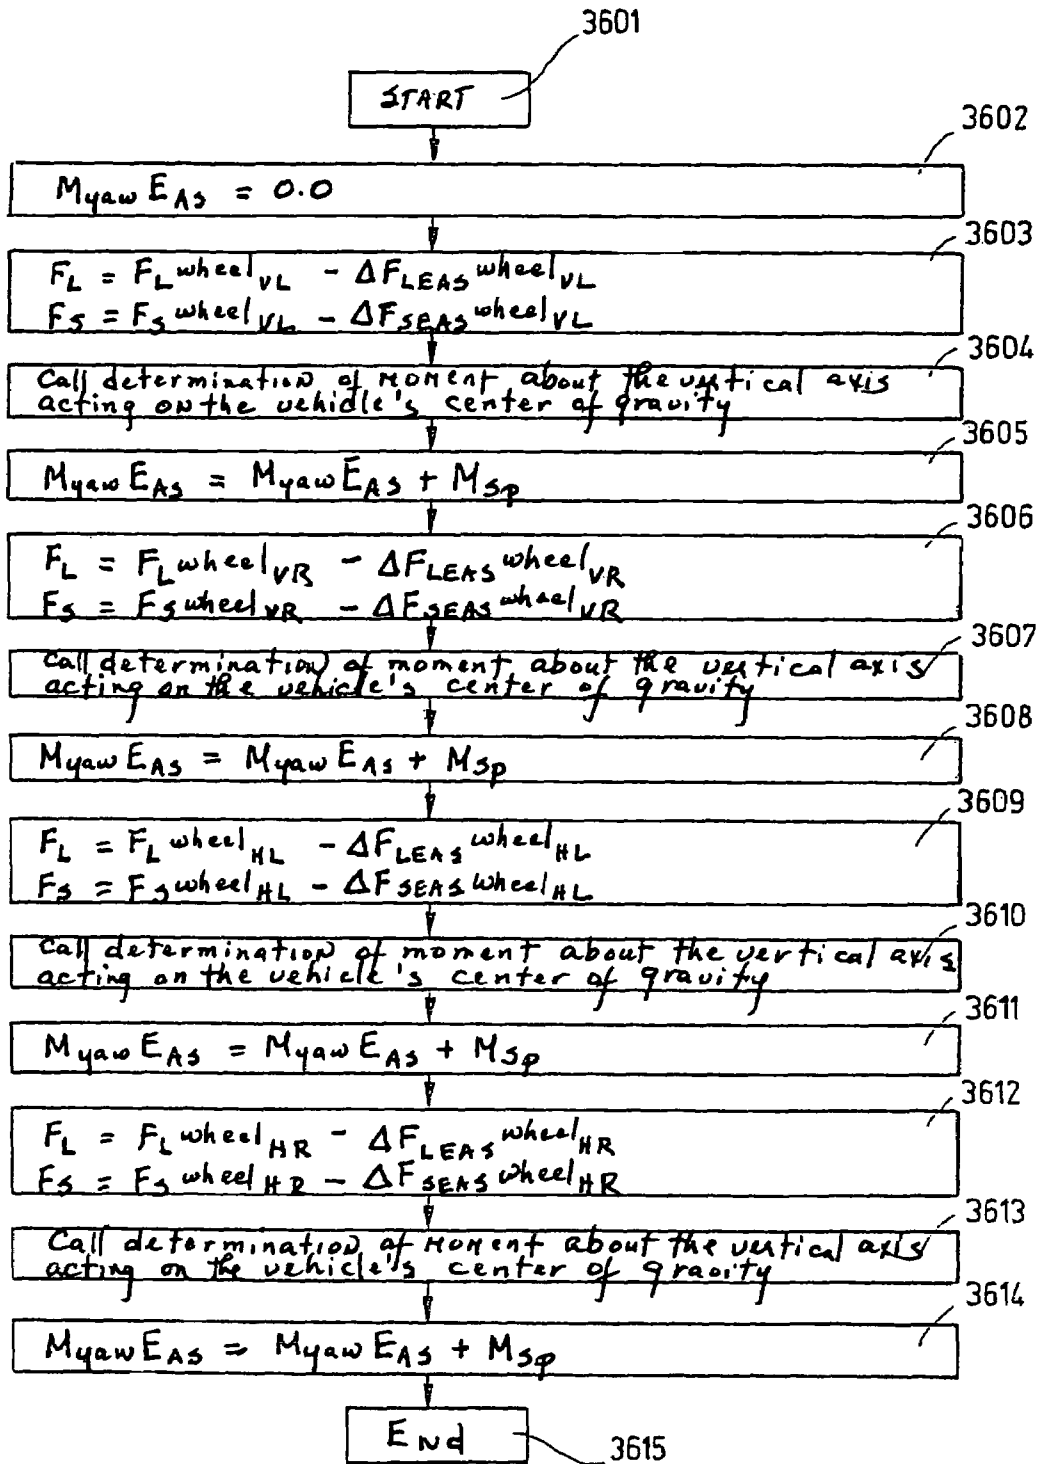 3601
START
3602
Myaw EAS = 0.0
3603
FL = FL wheelVL - ΔFLEAS wheelVL
FS = FS wheelVL - ΔFSEAS wheelVL
3604
Call determination of moment about the vertical axis
acting on the vehicle's center of gravity
3605
Myaw EAS = Myaw EAS + MSp
3606
FL = FL wheelVR - ΔFLEAS wheelVR
FS = FS wheelVR - ΔFSEAS wheelVR
3607
Call determination of moment about the vertical axis
acting on the vehicle's center of gravity
3608
Myaw EAS = Myaw EAS + MSp
3609
FL = FL wheelHL - ΔFLEAS wheelHL
FS = FS wheelHL - ΔFSEAS wheelHL
3610
Call determination of moment about the vertical axis
acting on the vehicle's center of gravity
3611
Myaw EAS = Myaw EAS + MSp
3612
FL = FL wheelHR - ΔFLEAS wheelHR
FS = FS wheelHR - ΔFSEAS wheelHR
3613
Call determination of moment about the vertical axis
acting on the vehicle's center of gravity
3614
Myaw EAS = Myaw EAS + MSp
End
3615